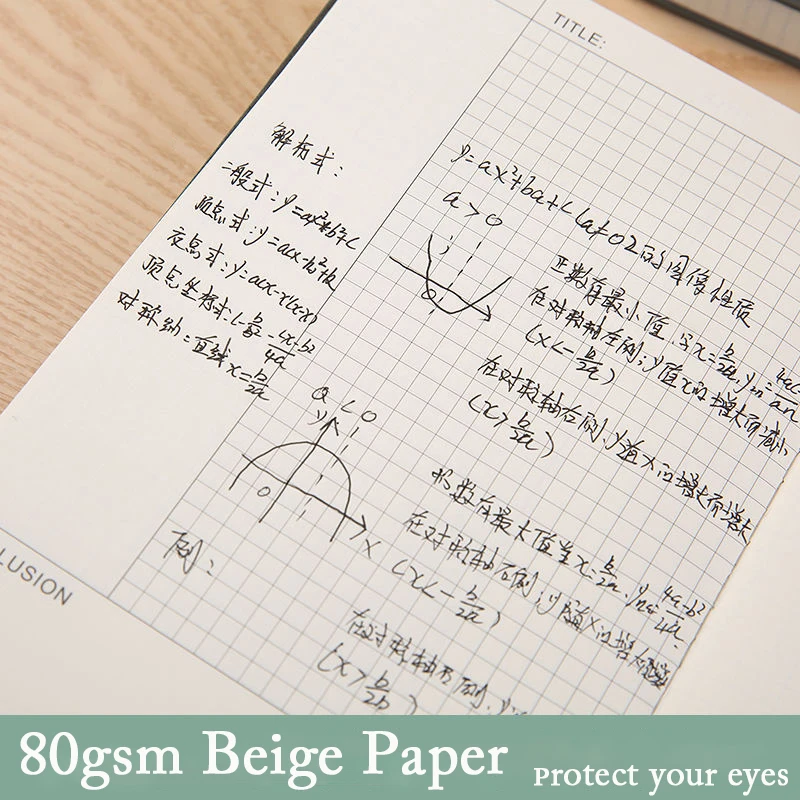 TITLE:
解析式:
一般式: y=ax²+bx+c
顶点式: y=a(x-h)²+k
交点式: y=a(x-x)(x-x)
顶点坐标式(-b/2a, 4x-b²/4a)
对称轴: 直线x=b/2a
y=ax²+ba+c(a≠0)的图像性质
a>0
正数有最小值,当x=b/2a, y
在对称轴左侧, y值x的增大而减小
(x<-b/2a)
在对称轴右侧, y值x的增大而增大
(x>b/2a)
a<0
y
0
x
数有最大值当x=b/2a, y 4a-b²/4a
在对称轴左侧, y值x的增大
(x<-b/2a)
例:
在对称轴右侧, y
(x>b/2b)
LUSION
80gsm Beige Paper
Protect your eyes